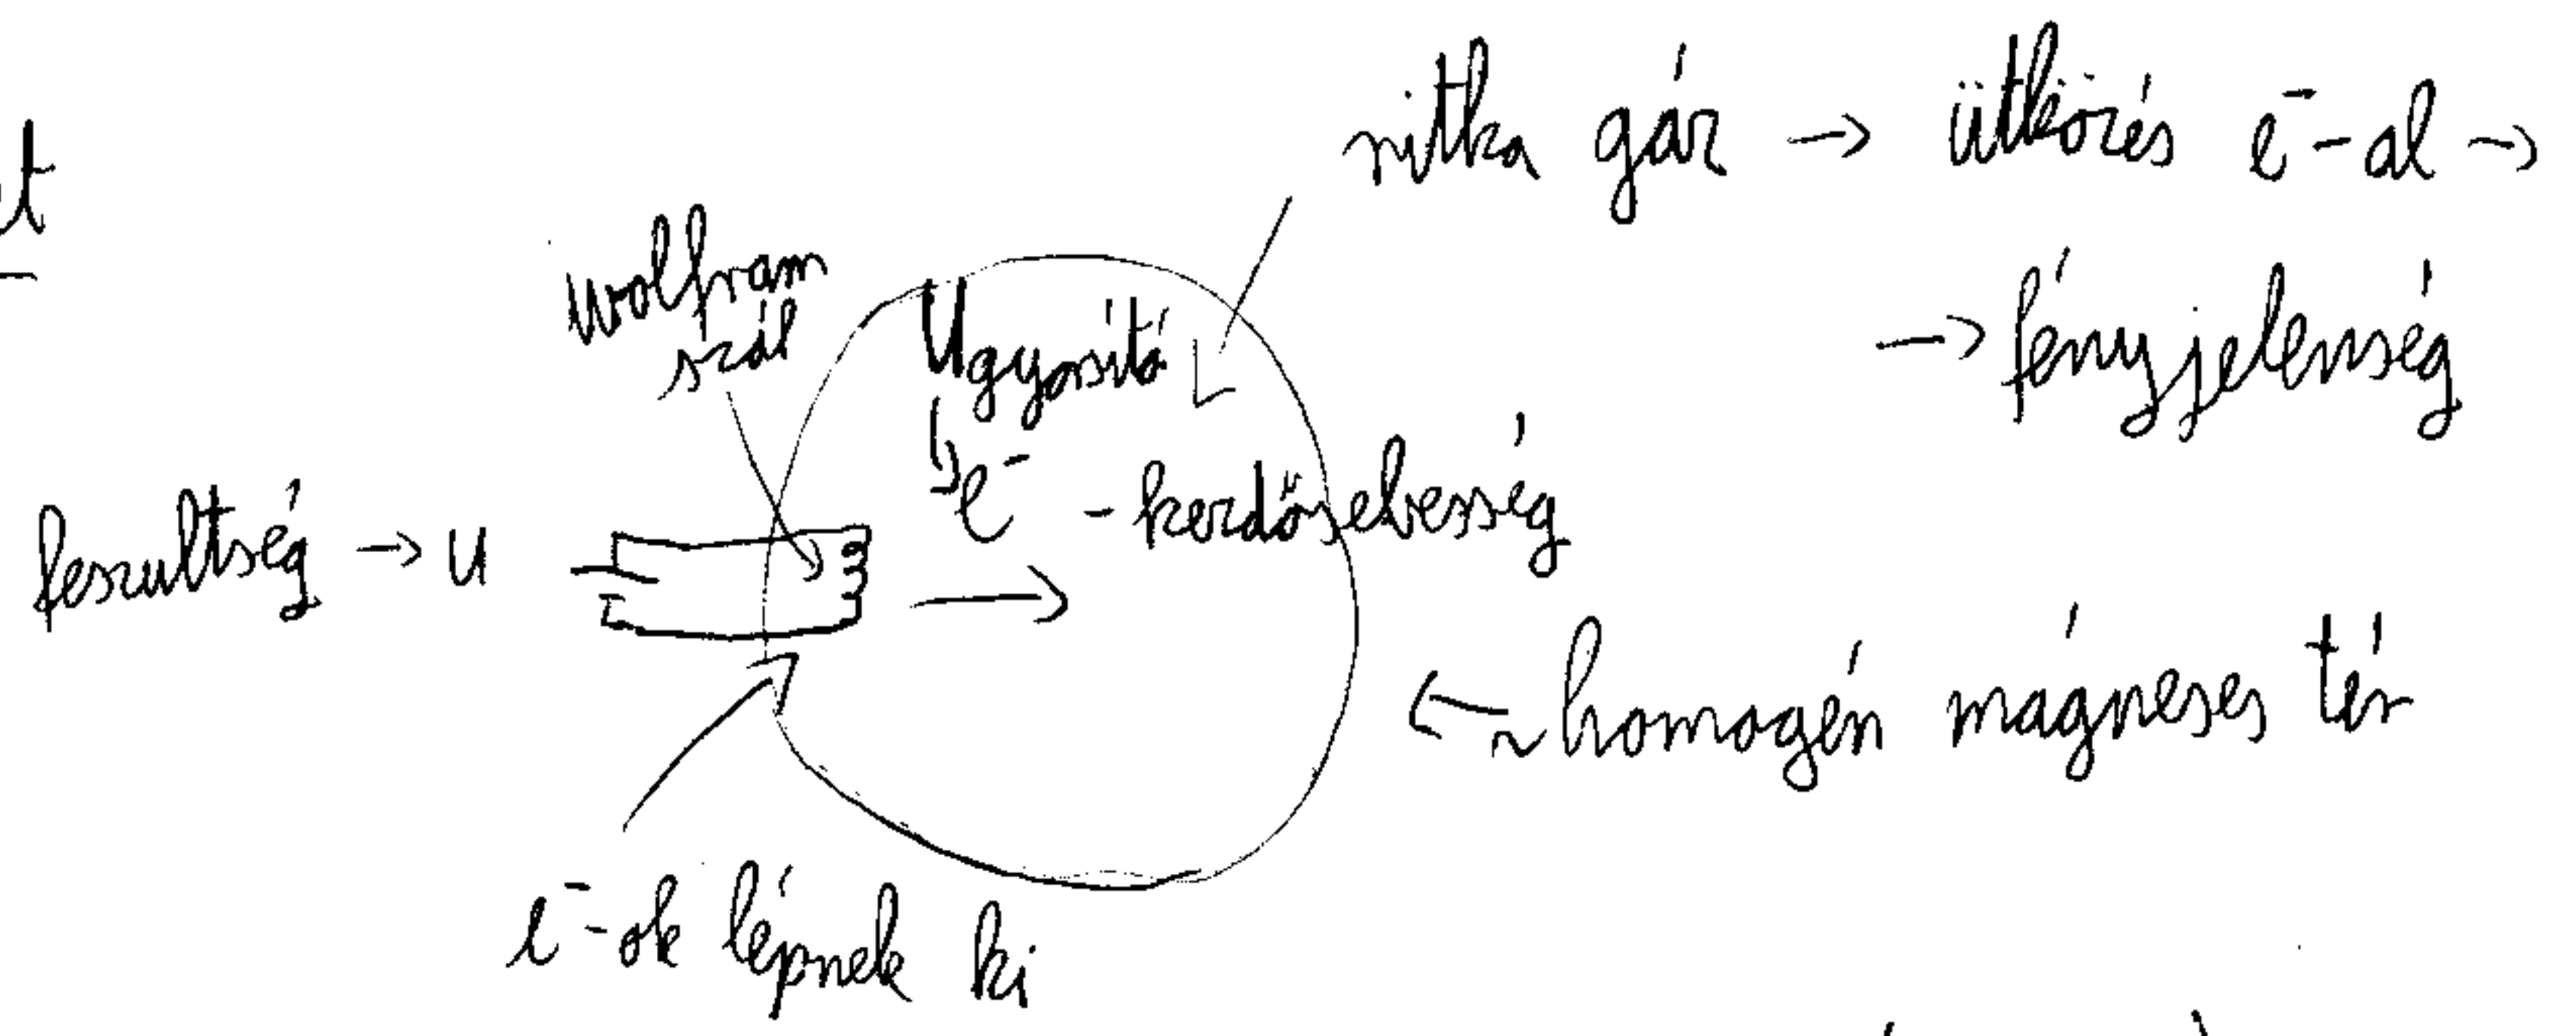 ritka gáz → ütközés e⁻-al →
→ fényjelenség
wolfram
szál
Ugyosító
e⁻ - kezdősebesség
feszultség → U
← ~ homogén mágneses tér
e⁻-ok lépnek ki